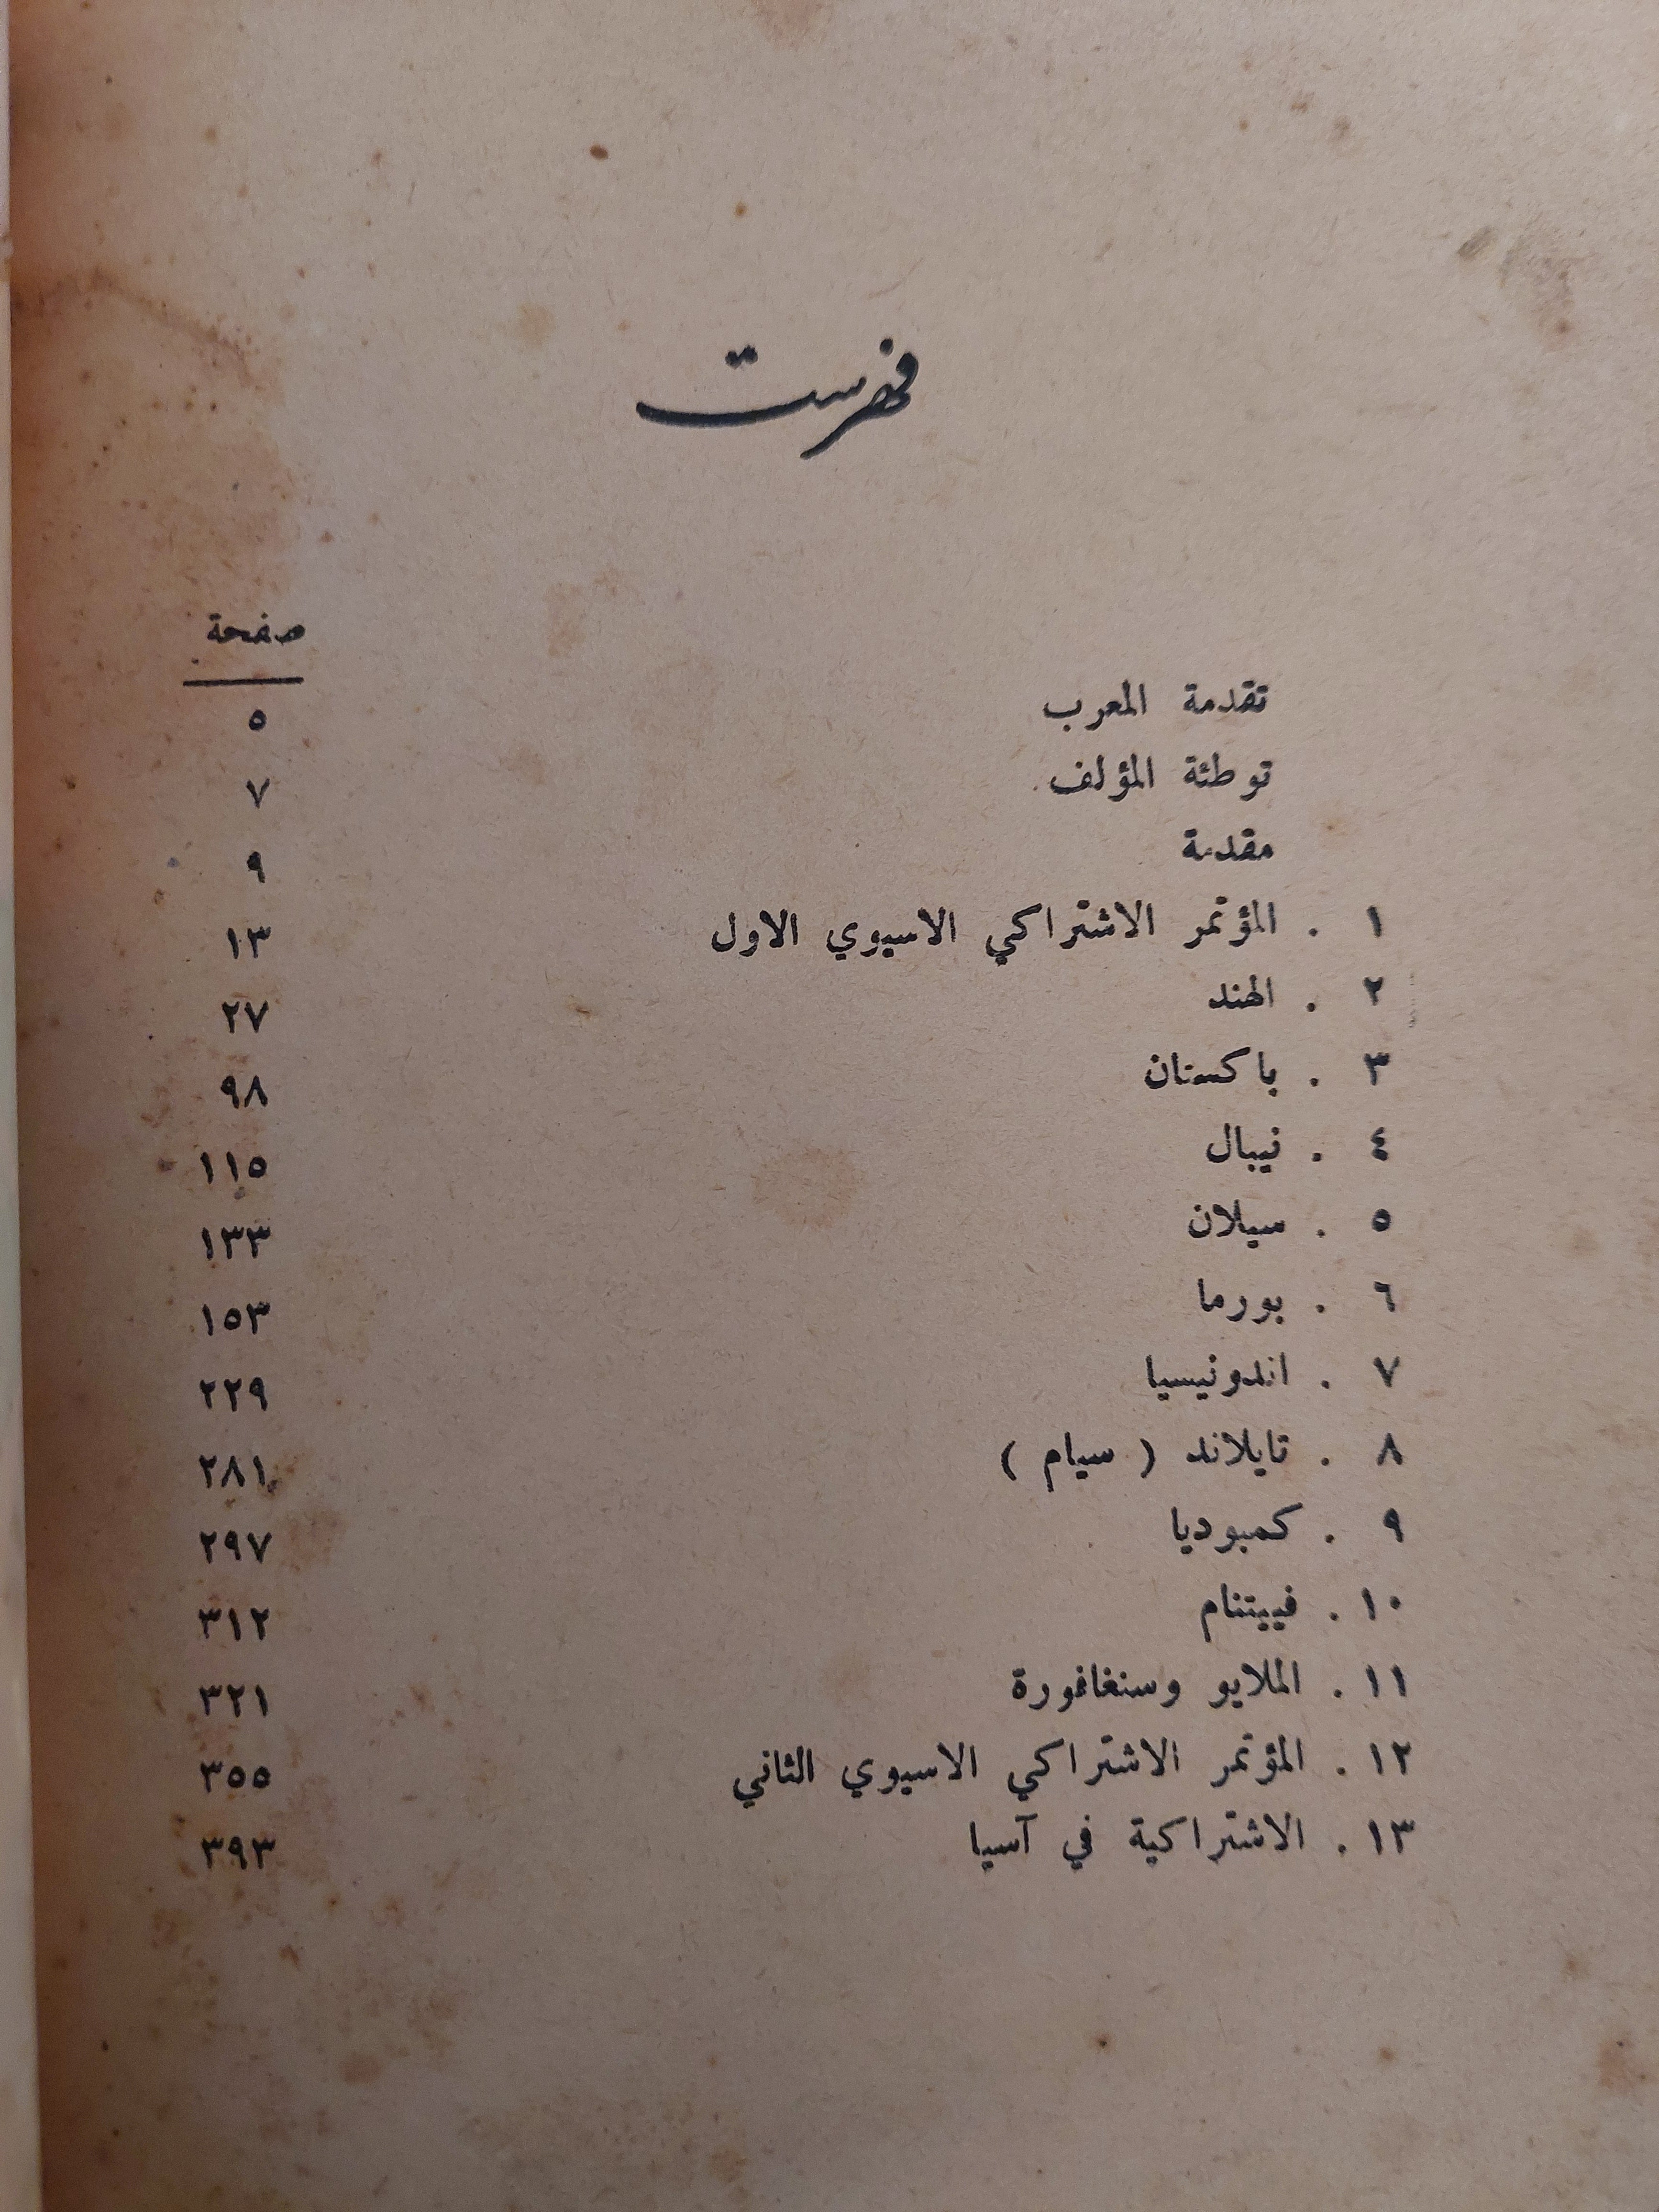 فهرست
صفحة
تقدمة المعرب ٥
توطئة المؤلف ٧
مقدمة ٩
١ . المؤتمر الاشتراكي الاسيوي الاول ١٣
٢ . الهند ٢٧
٣ . باكستان ٩٨
٤ . نيبال ١١٥
٥ . سيلان ١٣٣
٦ . بورما ١٥٣
٧ . اندونيسيا ٢٢٩
٨ . تايلاند ( سيام ) ٢٨١
٩ . كمبوديا ٢٩٧
١٠ . فييتنام ٣١٢
١١ . الملايو وسنغافورة ٣٢١
١٢ . المؤتمر الاشتراكي الاسيوي الثاني ٣٥٥
١٣ . الاشتراكية في آسيا ٣٩٣